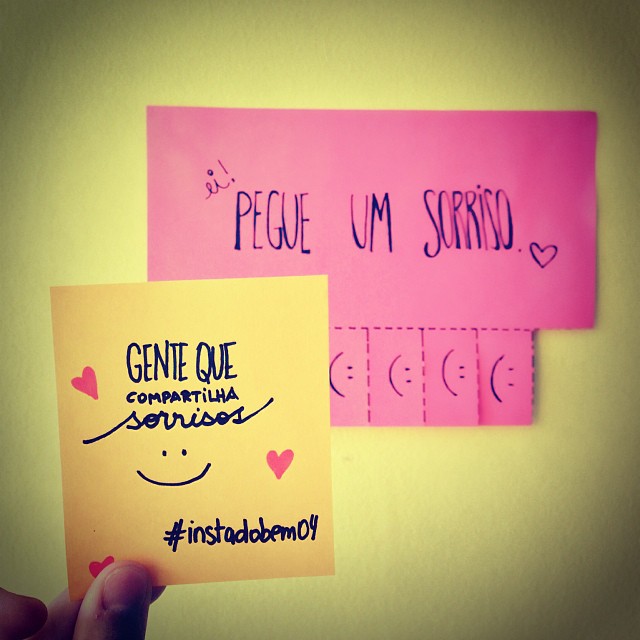 ei!
PEGUE UM SORRISO.
GENTE QUE
COMPARTILHA
sorrisos
#instadobem04